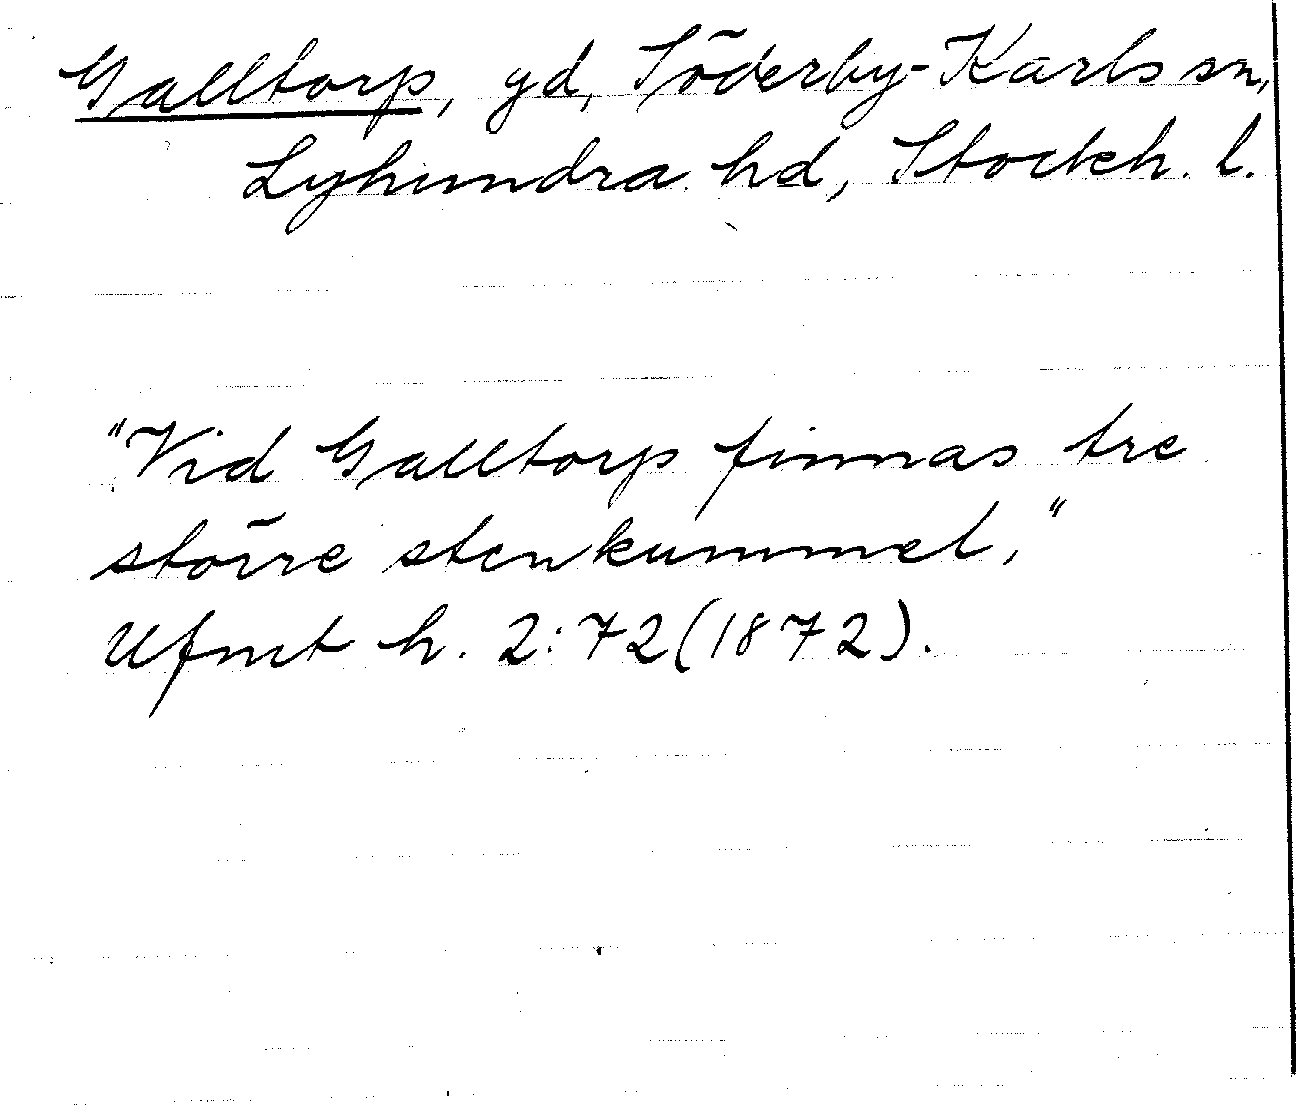 Galltorp, gd, Söderby-Karls sn,
Lyhundra hd, Stockh. l.
"Vid Galltorp finnas tre
större stenkummel,"
Ufmt h. 2:72(1872).